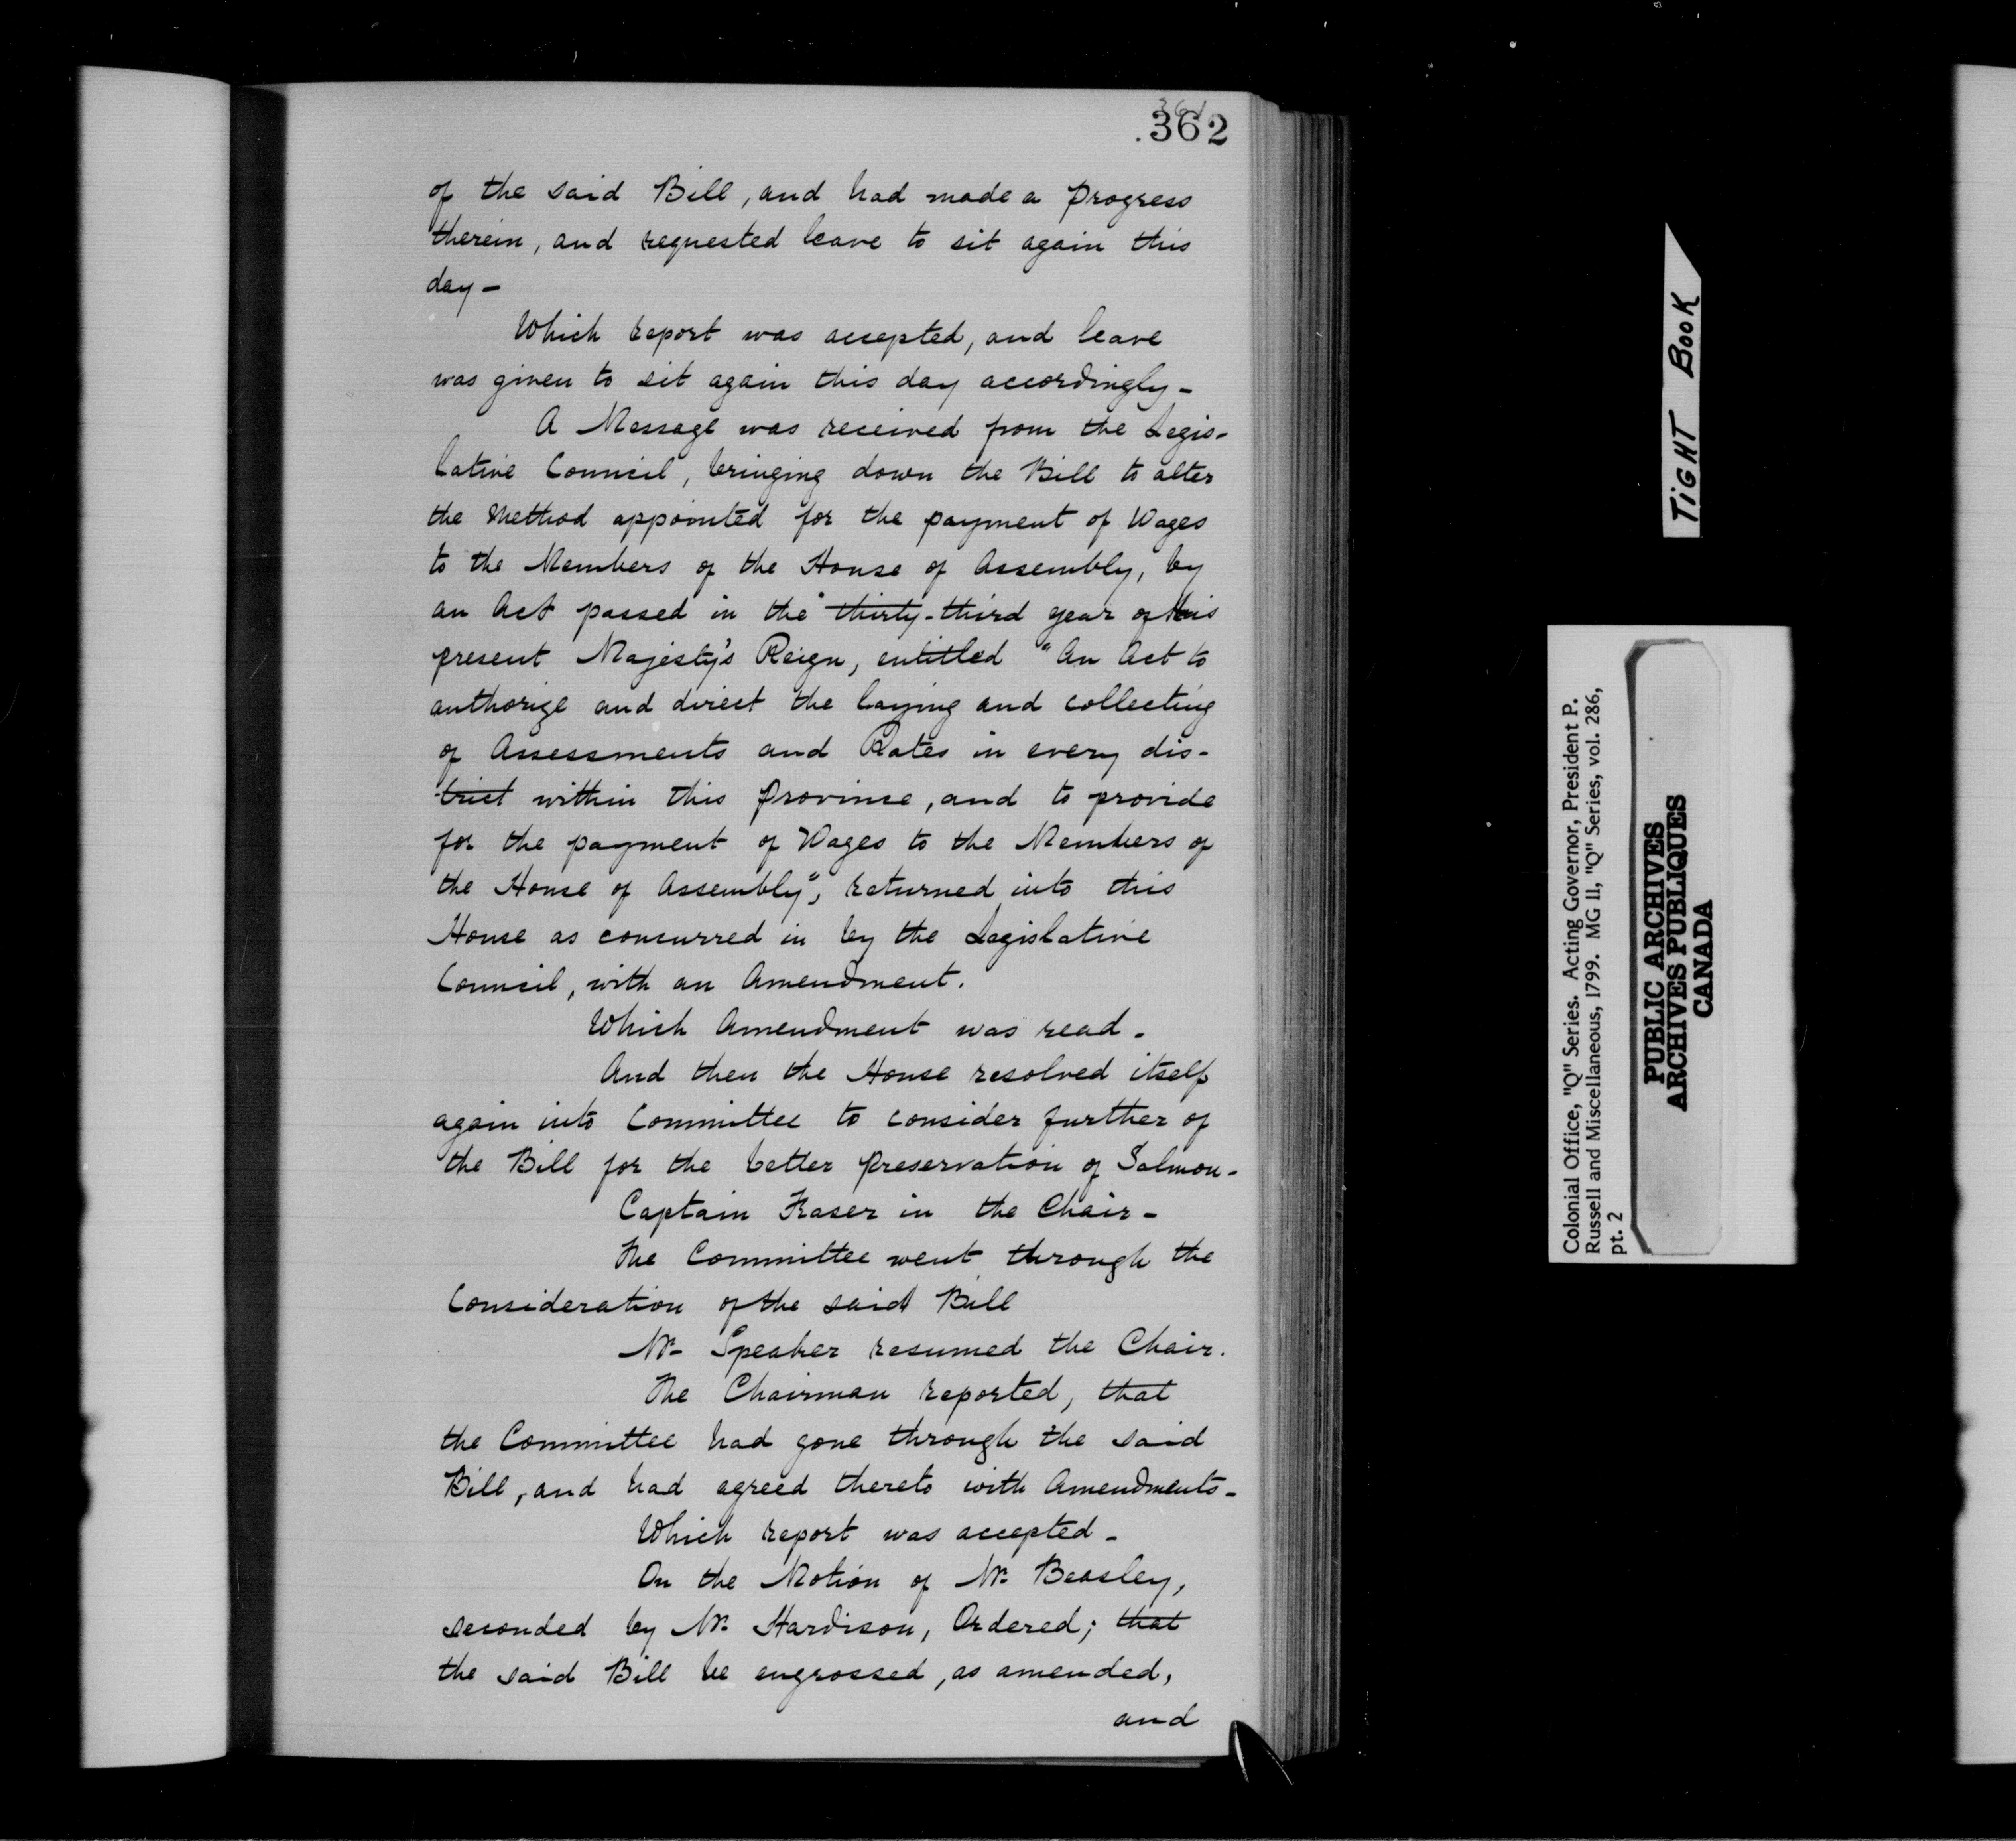 361
.362
of the said Bill, and had made a progress
therein, and requested leave to sit again this
day -
Which report was accepted, and leave
was given to sit again this day accordingly -
A Message was received from the Legis-
lative Council, bringing down the Bill to alter
the Method appointed for the payment of Wages
to the Members of the House of Assembly, by
an Act passed in the thirty-third year of his
present Majesty's Reign, entitled "An Act to
authorize and direct the laying and collecting
of Assessments and Rates in every dis-
trict within this Province, and to provide
for the payment of Wages to the Members of
the House of Assembly", returned into this
House as concurred in by the Legislative
Council, with an Amendment.
Which Amendment was read -
And then the House resolved itself
again into Committee to consider further of
the Bill for the better preservation of Salmon -
Captain Fraser in the Chair -
The Committee went through the
Consideration of the said Bill
Mr. Speaker resumed the Chair.
The Chairman reported, that
the Committee had gone through the said
Bill, and had agreed thereto with Amendments -
Which report was accepted -
On the Motion of Mr. Beasley,
seconded by Mr. Hardison, Ordered; that
the said Bill be engrossed, as amended,
and
TIGHT BOOK
Colonial Office, "Q" Series. Acting Governor, President P.
Russell and Miscellaneous, 1799. MG 11, "Q" Series, vol. 286,
pt. 2
PUBLIC ARCHIVES
ARCHIVES PUBLIQUES
CANADA